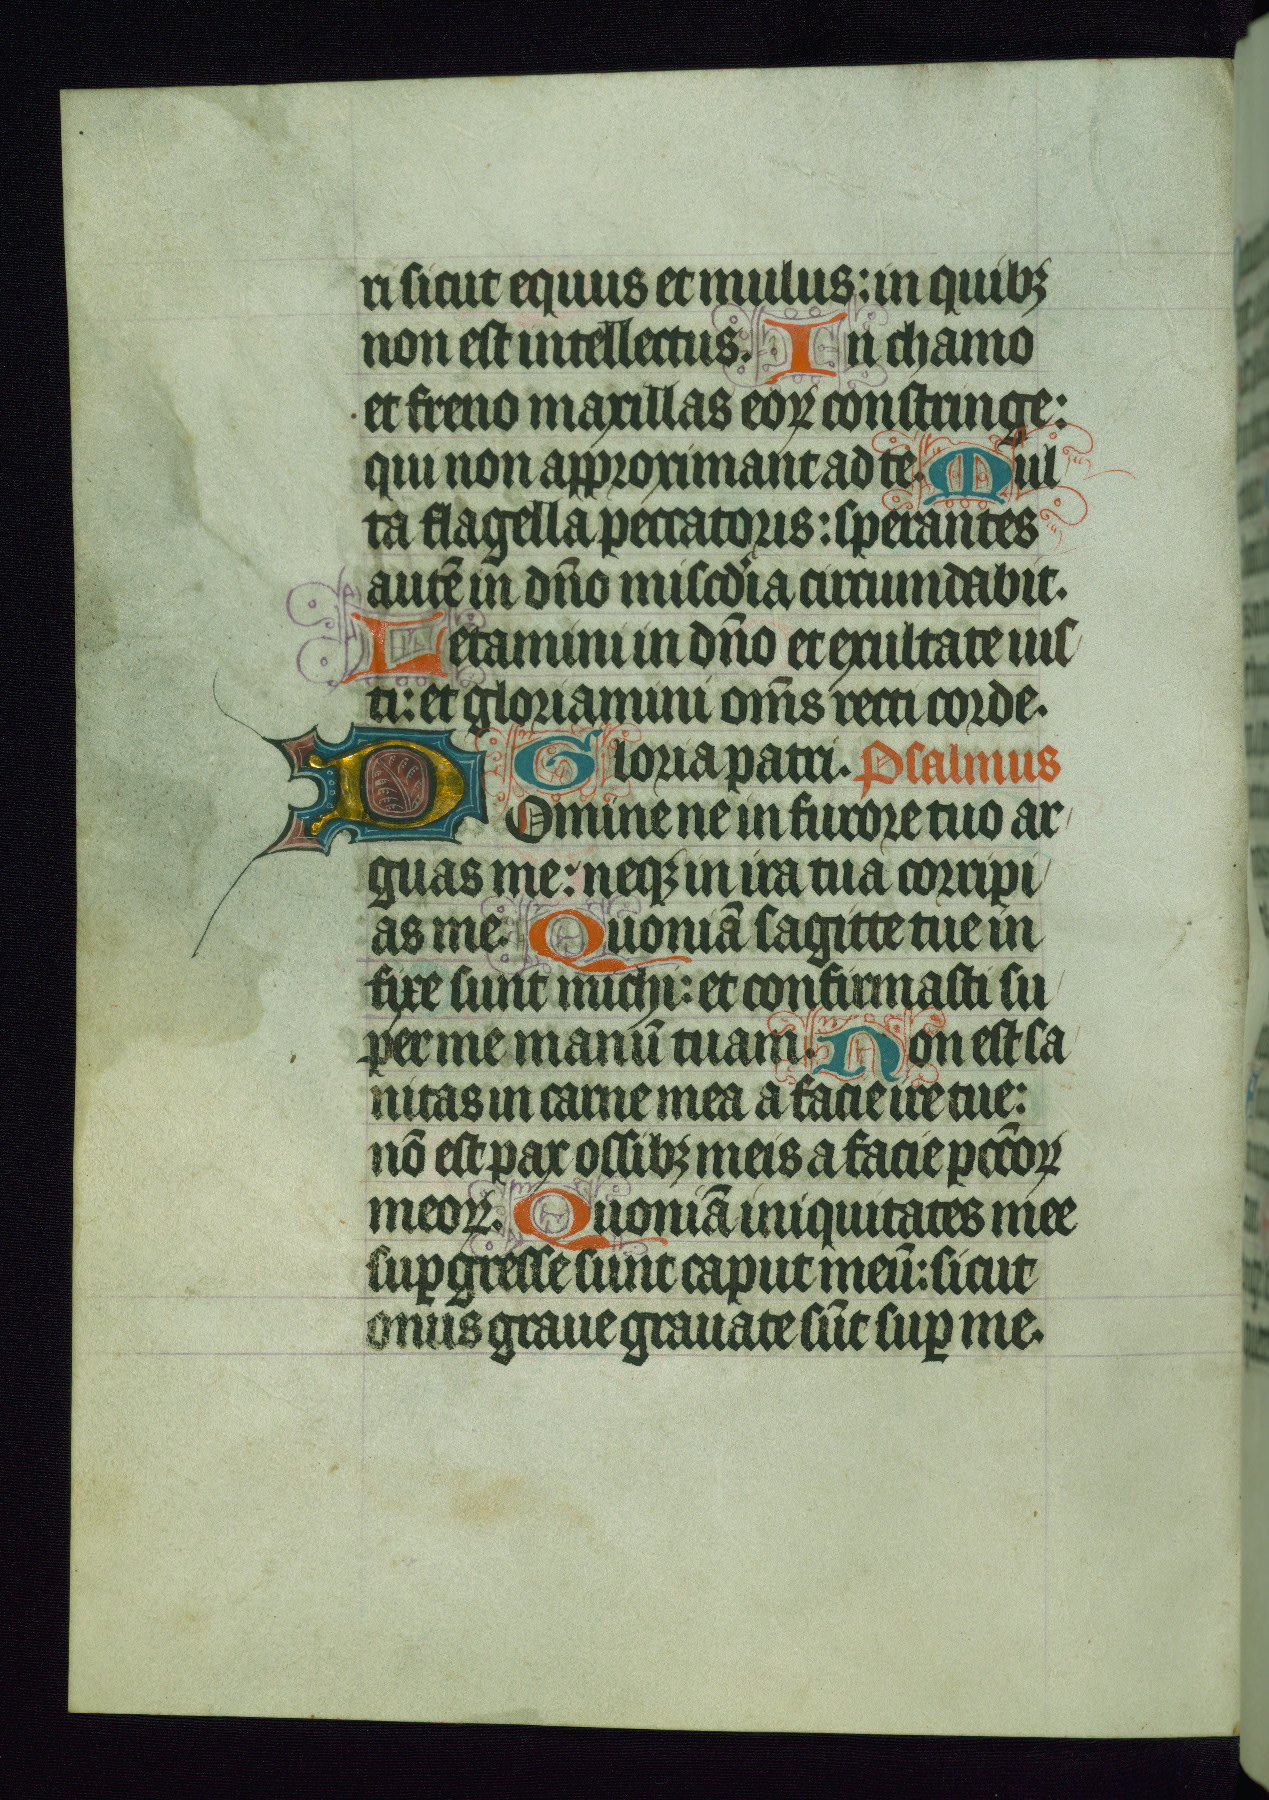 ri sicut equus et mulus: in quibꝫ
non est intellectus. In chamo
et freno maxillas eoꝝ constringe:
qui non approximant ad te. Mul
ta flagella peccatoris: sperantes
autē in dn̄o miſcdia circumdabit.
Letamini in dn̄o et exultate iuſ
ti: et gloriamini om̄s recti corde.
Gloria patri. Psalmus
Domine ne in furore tuo ar
guas me: neqꝫ in ira tua corripi
as me. Quoniā sagitte tue in
fixe sunt michi: et confirmasti su
per me manū tuam. Non est sa
nitas in carne mea a facie ire tue:
nō est pax ossibꝫ meis a facie pcc̄oꝝ
meoꝝ. Quoniā iniquitates mee
suꝑgresse sunt caput meū: sicut
onus graue grauate sūt suꝑ me.